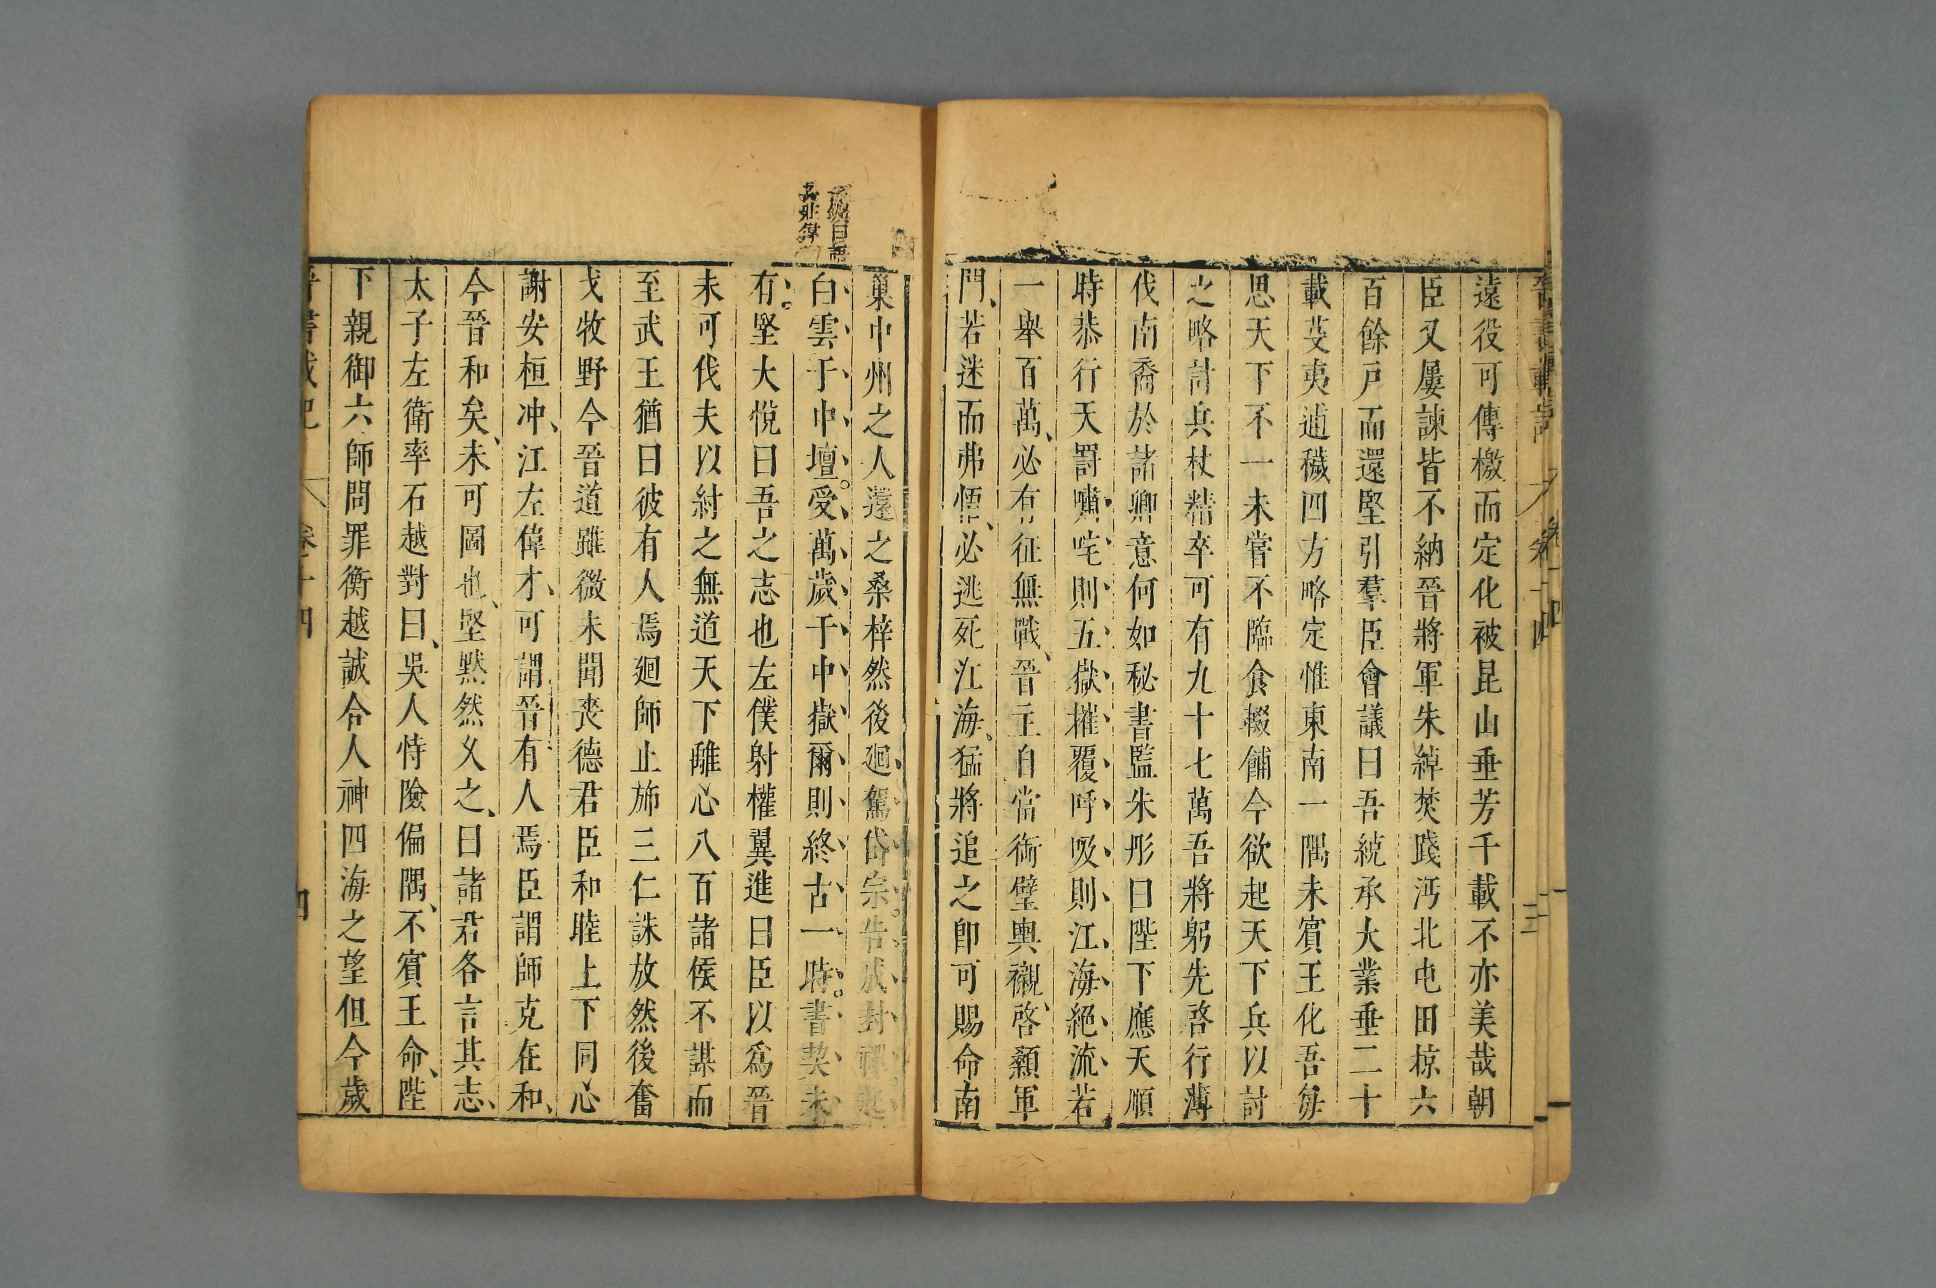 遠役可傳檄而定化被昆山垂芳千載不亦美哉朝
臣又屢諫皆不納晉將軍朱綽焚踐沔北屯田掠六
百餘戸而還堅引羣臣會議曰吾統承大業垂二十
載芟夷逋穢四方略定惟東南一隅未賓王化吾每
思天下不一未嘗不臨食輟餔今欲起天下兵以討
之略計兵杖精卒可有九十七萬吾將躬先啓行薄
伐南裔於諸卿意何如秘書監朱彤曰陛下應天順
時恭行天罰嘯咤則五嶽摧覆呼吸則江海絕流若
一舉百萬必有征無戰晉主自當銜璧輿櫬啓顙軍
門若迷而弗悟必逃死江海猛將追之卽可賜命南
巢中州之人還之桑梓然後廻駕岱宗告成封禪起
白雲于中壇受萬歲于中嶽爾則終古一時書契未
有堅大悅曰吾之志也左僕射權翼進曰臣以爲晉
未可伐夫以紂之無道天下離心八百諸侯不謀而
至武王猶曰彼有人焉廻師止斾三仁誅放然後奮
戈牧野今晉道雖微未聞喪德君臣和睦上下同心
謝安桓冲江左偉才可謂晉有人焉臣謂師克在和
今晉和矣未可圖也堅黙然久之曰諸君各言其志
太子左衛率石越對曰吳人恃險偏隅不賓王命陛
下親御六師問罪衡越誠合人神四海之望但今歲
卷十四
四